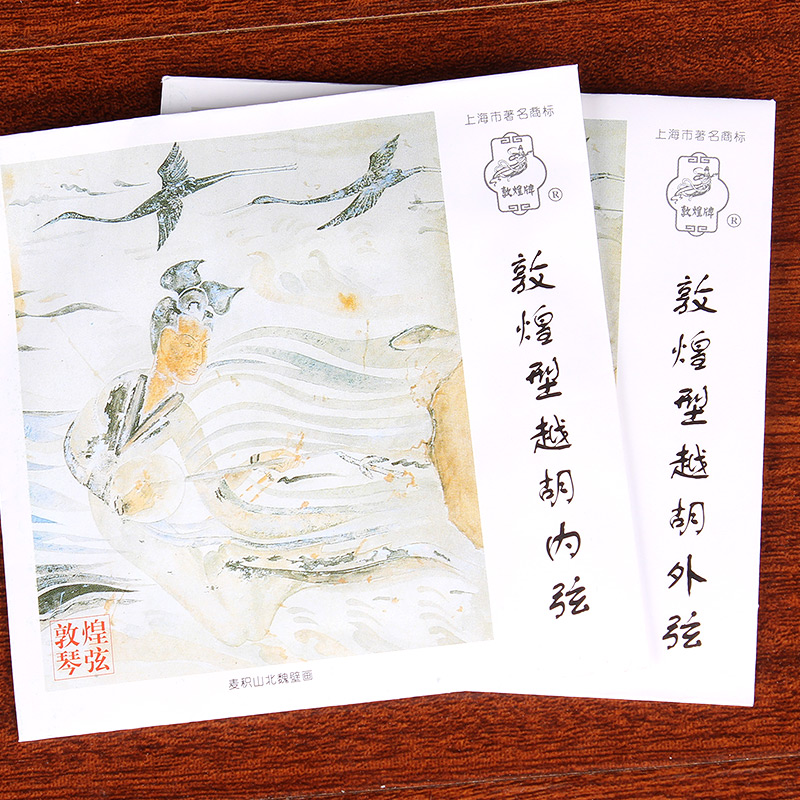 上海市著名商标
敦煌牌
®
敦煌型越胡内弦
敦煌
琴弦
麦积山北魏壁画
上海市著名商标
敦煌牌
®
敦煌型越胡外弦